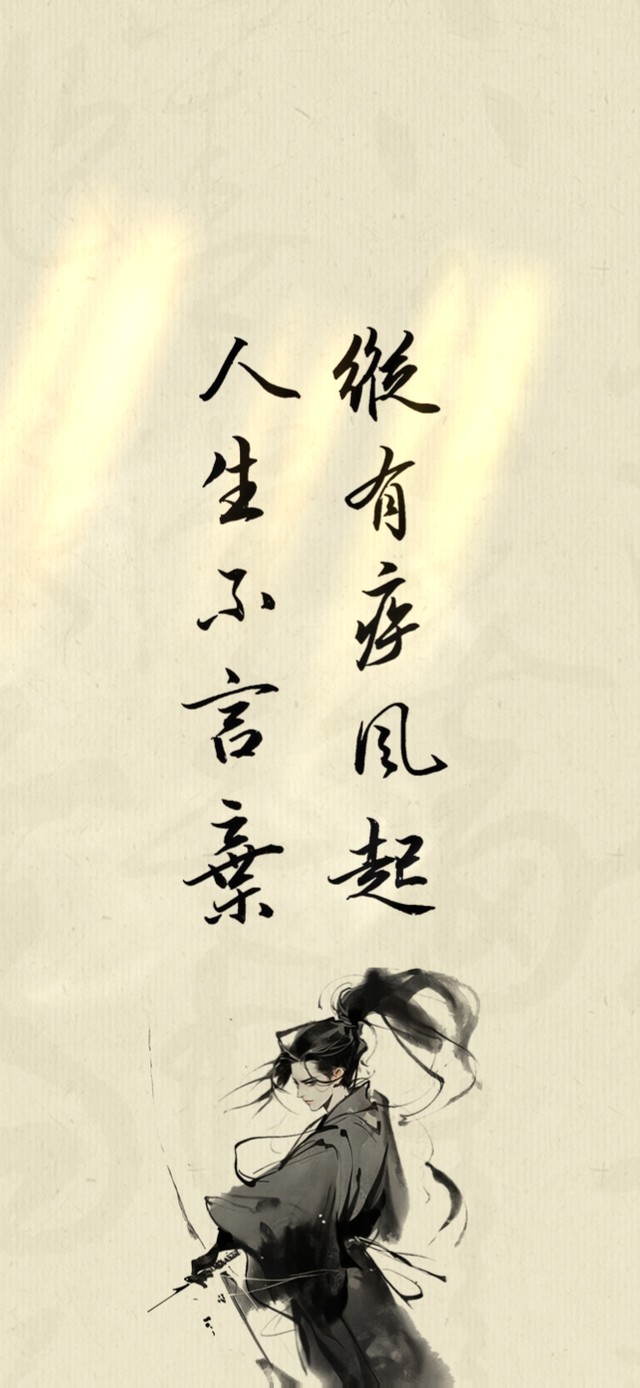 縱有疾风起
人生不言棄